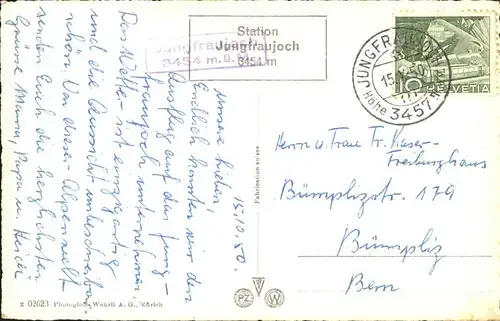 Station
Jungfraujoch
3454 m
Jungfraujoch
3454 m.ü.M.
JUNGFRAUJOCH
15.X.50
Höhe 3457 m
10 HELVETIA
15.10.50.
Unsere Lieben,
Endlich konnten wir den
Ausflug auf das Jung-
fraujoch unternehmen.
Das Wetter ist einzigartig
und die Aussicht unbeschreibbar
schön. Von dieser Alpenwelt
senden Euch die herzlichsten
Grüsse Mama, Papa u. Heidi
Herrn u. Frau Fr. Kaser-
Freiburghaus
Bümplizstr. 179
Bümpliz
Bern
Fabrication suisse
PZ W
Z 02623 Photoglob-Wehrli A. G., Zürich